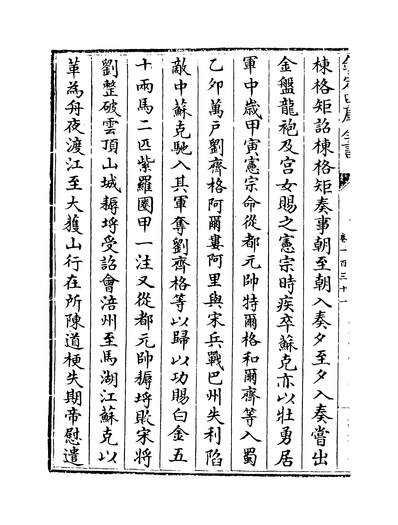 欽定四庫全書
卷一百三十一
棟格矩詔棟格矩奏事朝至朝入奏夕至夕入奏嘗出
金盤龍袍及宫女賜之憲宗時疾卒蘇克亦以壯勇居
軍中歲甲寅憲宗命從都元帥特爾格和爾齊等入蜀
乙卯萬戸劉齊格阿爾婁阿里與宋兵戰巴州失利陷
敵中蘇克馳入其軍奪劉齊格等以歸以功賜白金五
十兩馬二匹紫羅圏甲一注又從都元帥耨埒敗宋將
劉整破雲頂山城耨埒受詔會涪州至馬湖江蘇克以
革為舟夜渡江至大獲山行在所陳道梗失期帝慰遣